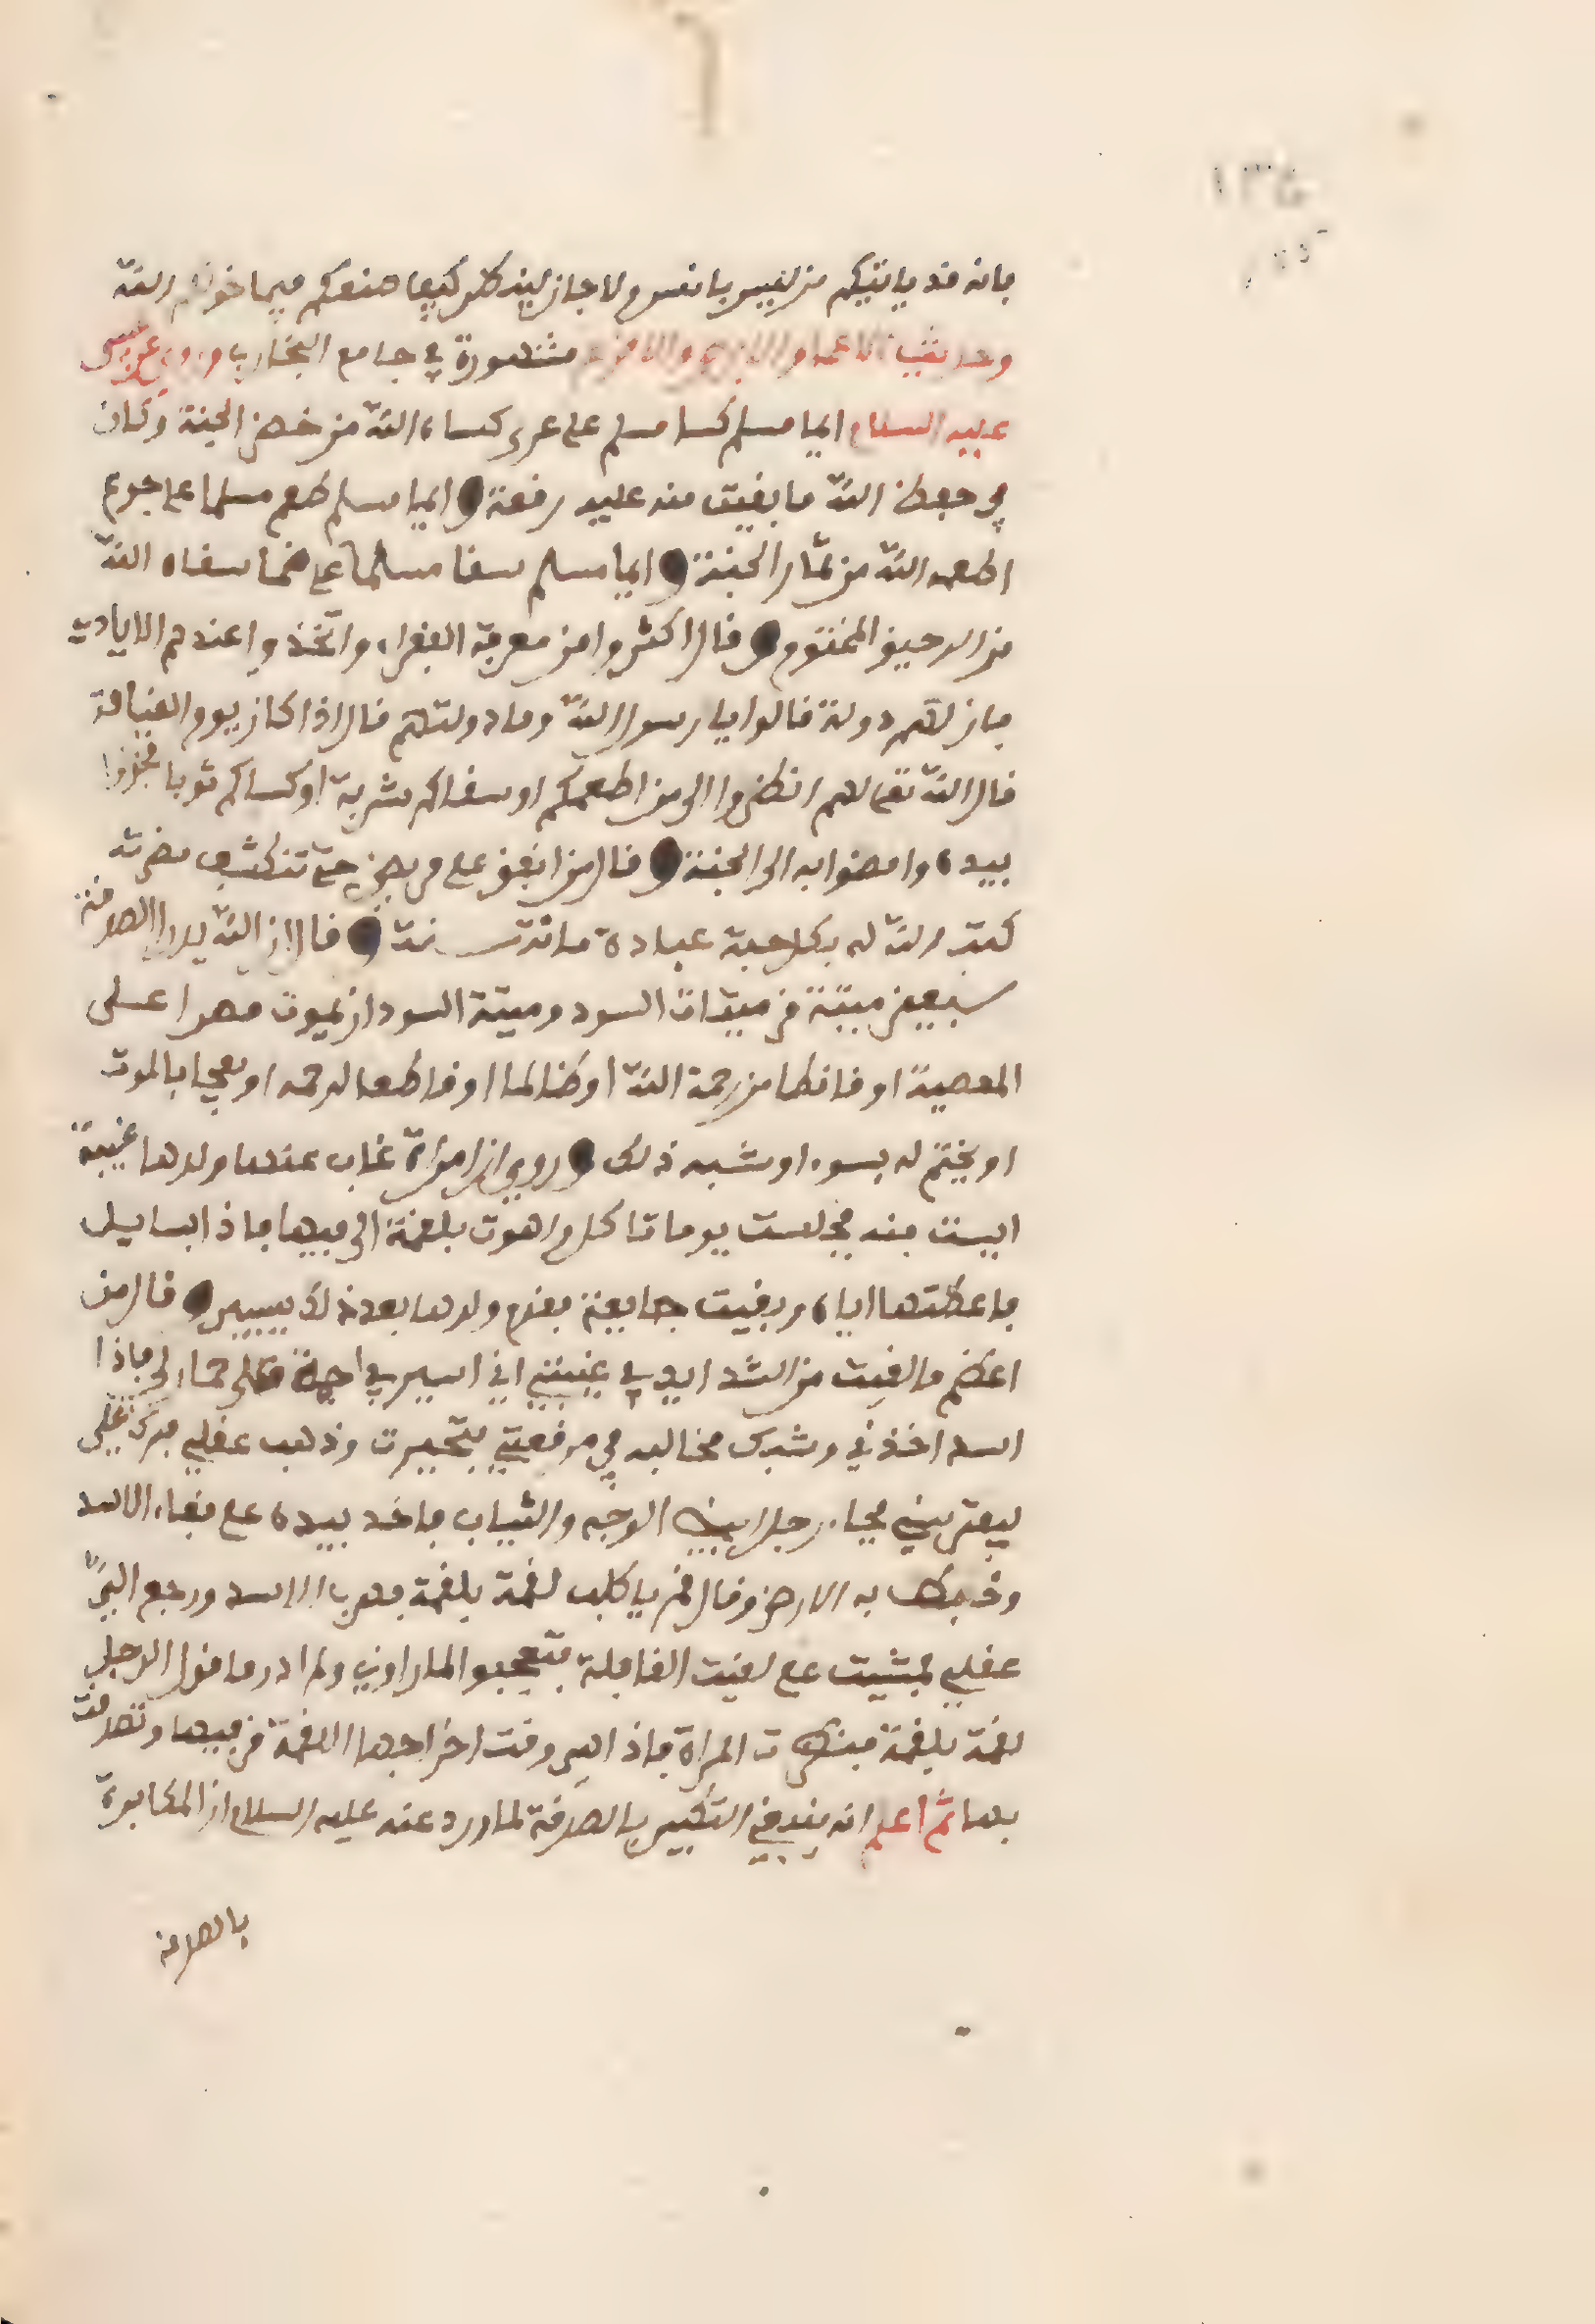 فانه قد ياتيكم من ليس بانس ولا جان لينظر كيف صنعكم فيما خولكم الله
وحديث الاعمى والابرص والاقرع مشهورة في جامع البخاري وروي عن عيسى
عليه السلام ايما مسلم كسا مسلم على عري كساه الله من خضر الجنة وكان
في حفظ الله ما بقيت منه عليه رقعة وايما مسلم طعم مسلما على جوع
اطعمه الله من ثمار الجنة وايما مسلم سقا مسلما على ضما سقاه الله
من الرحيق المختوم وقال اكثروا من معرفة الفقراء واتخذوا عندهم الايادي
فان لهم دولة قالوا يا رسول الله وما دولتهم قال اذا كان يوم القيامة
قال الله تعالى لهم انظروا الى من اطعمكم او سقاكم شربة او كساكم ثوبا فخذوا
بيده وامضوا به الى الجنة وقال من انفق على مريض حتى تنكشف مضرته
كتب الله له بكل حبة عبادة مائة سنة وقال ان الله ليدرا بالصدقة
سبعين ميتة من ميتات السوء وميتة السوء ان يموت مصرا على
المعصية او قانطا من رحمة الله او ظالما او قاطعا لرحمه او يفجا بالموت
او يختم له بسوء او شبه ذلك وروي ان امراة غاب عنها ولدها غيبة
ايست منه فجلست يوما تاكل واهوت بلقمة الى فيها فاذا بسايل
فاعطتها اياه وبقيت جايعة فقدم ولدها بعد ذلك بيسير وقال من
اعظم ما لقيت من الشدايد في غيبتي اني اسير في اجمة على حمار لي فاذا
اسد اخذني وشبك مخالبه في مرقعتي فتحيرت وذهب عقلي فبرك علي
ليفترسني فجاء رجل ابيض الوجه والثياب فاخذ بيده على قفاء الاسد
وضبط به الارض وقال قم يا كلب لقمة بلقمة فهرب الاسد ورجع الي
عقلي فمشيت حتى لقيت القافلة فتعجبوا لما راوني ولم ادر ما قول الرجل
لقمة بلقمة فنظرت المراة فاذا هي وقت اخراجها اللقمة من فيها وتصدقت
بها ثم اعلم انه ينبغي التبكير بالصدقة لما ورد عنه عليه السلام ان المكابرة
بالصدقة